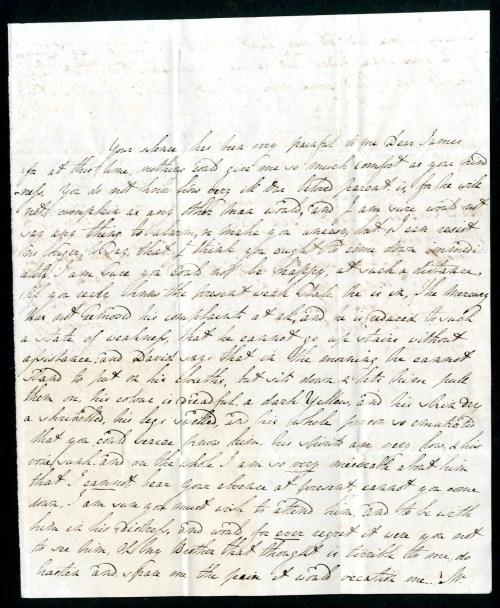 Your silence has been very painful to me Dear James
for at this time, nothing could give me so much comfort as your kind
ness. You do not know how very ill Our beloved parent is, for he will
not complain as any other man would, and I am sure would not
say any thing to alarm, or make you uneasy, but I can resist
no longer, to say that I think you ought to come down immedi
ately I am sure you could not be happy, at such a distance,
if you really knew the present weak State he is in, The mercury
has not removed his complaints at all, and he is reduced to such
a State of weakness, that he cannot go up Stairs without
assistance, and David says that in the morning he cannot
Stand to put on his cloaths, but sits down & lets him pull
them on, his colour is dreadful, a dark Yellow, and his Skin Dry
& shrivelled, his legs swelled, and his whole person so emaciated
that you could scarce know him, his spirits are very low, & his
voice sunk, and on the whole I am so very miserable about him
that I cannot bear your absence at present cannot you come
down, I am sure you must wish to attend him, and to be with
him in his distress, and would for ever regret it were you not
to see him, Oh my Brother that thought is terrible to me, do
hasten and spare me the pain it would occasion me. Mr